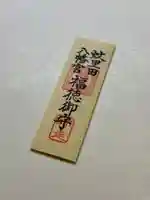 蚊里田
八幡宮
福徳御守